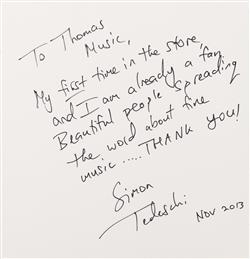 To Thomas
Music,
My first time in the store,
and I am already a fan.
Beautiful people spreading
the word about fine
music ..... THANK YOU!
Simon
Tedeschi
NOV 2013